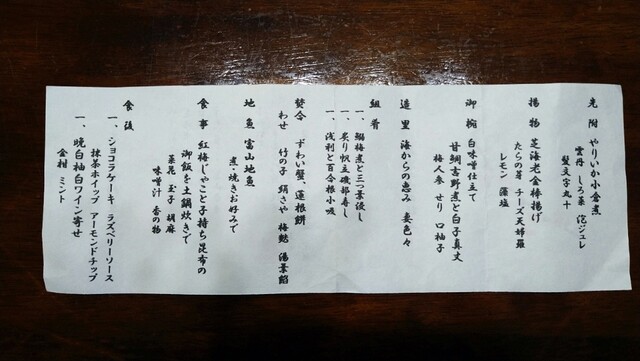 先附 やりいか小倉煮
雲丹 しろ菜 花ジュレ
髪文字丸十
揚物 芝海老金棒揚げ
たらの芽 チーズ天婦羅
レモン 藻塩
御椀 白味噌仕立て
甘鯛吉野煮と白子真丈
梅人参 せり 口柚子
造里 海からの恵み 妻色々
組肴
一、鯛梅煮と三つ葉浸し
一、炙り帆立磯部寿し
一、浅利と百合根小吸
焚合 ずわい蟹、蓮根餅
わせ 竹の子 絹さや 梅麩 湯葉餡
地魚 富山地魚
煮・焼きお好みで
食事 紅梅じゃこと子持ち昆布の
御飯を土鍋炊きで
菜花 玉子 胡麻
味噌汁 香の物
食後
一、ショコラケーキ ラズベリーソース
抹茶ホイップ アーモンドチップ
一、晩白柚白ワイン寄せ
金柑 ミント